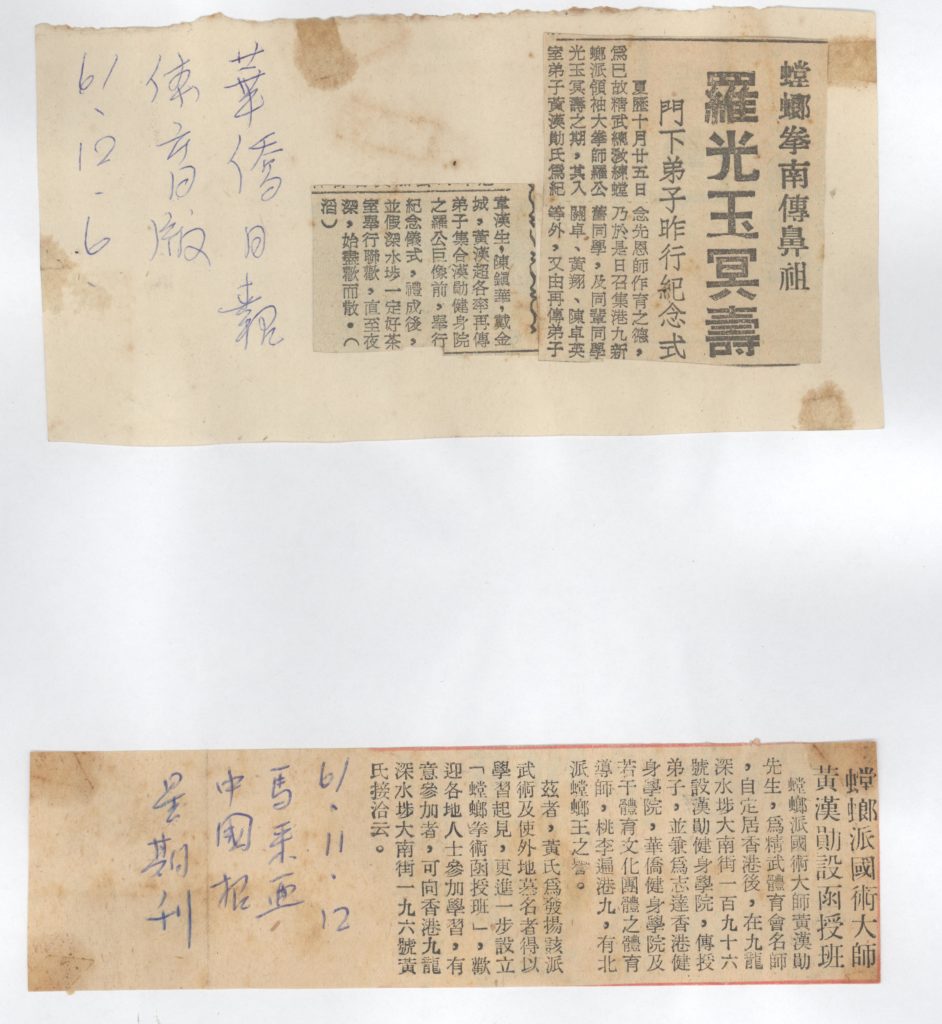 螳螂拳南傳鼻祖
羅光玉冥壽
門下弟子昨行紀念式
夏歷十月廿五日
爲已故精武總教練螳
螂派領袖大拳師羅公
光玉冥壽之期,其入
室弟子黃漢勛氏爲紀
念先恩師作育之德,
乃於是日召集港九新
舊同學,及同輩同學
關卓、黃翔、陳卓英
等外,又由再傳弟子
韋漢生,陳鎭華,戴金
城,黃漢超各率再傳
弟子集合漢勛健身院
之羅公巨像前,舉行
紀念儀式,禮成後,
並假深水埗一定好茶
室舉行聯歡,直至夜
深,始盡歡而散。(
滔)
華僑日報
体育版
61.12.6
螳螂派國術大師
黃漢勛設函授班
螳螂派國術大師黃漢勛
先生,爲精武體育會名師
,自定居香港後,在九龍
深水埗大南街一百九十六
號設漢勛健身學院,傳授
弟子,並兼爲志達香港健
身學院,華僑健身學院及
若干體育文化團體之體育
導師,桃李遍港九,有北
派螳螂王之譽。
茲者,黃氏爲發揚該派
武術及使外地慕名者得以
學習起見,更進一步設立
「螳螂拳術函授班」,歡
迎各地人士參加學習,有
意參加者,可向香港九龍
深水埗大南街一九六號黃
氏接洽云。
61.11.12
馬來亜
中國招
星期刊